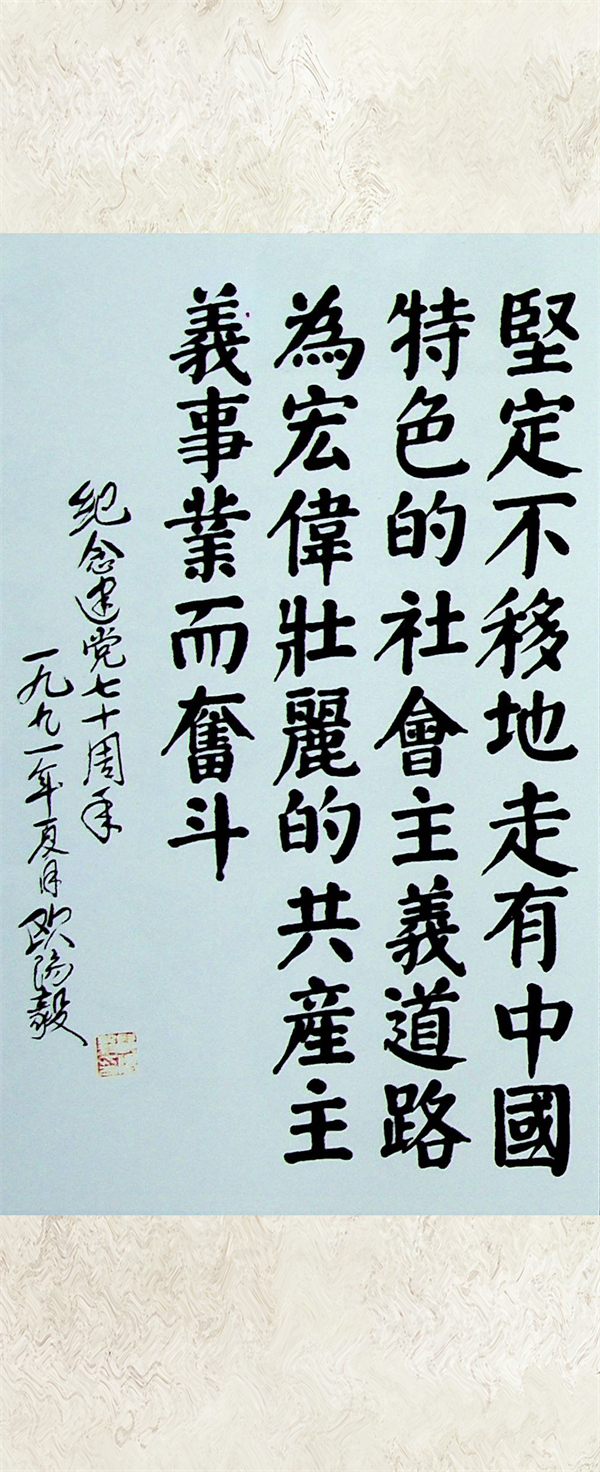 堅定不移地走有中國
特色的社會主義道路
為宏偉壯麗的共産主
義事業而奮斗
紀念建党七十周年
一九九一年夏月欧陽毅